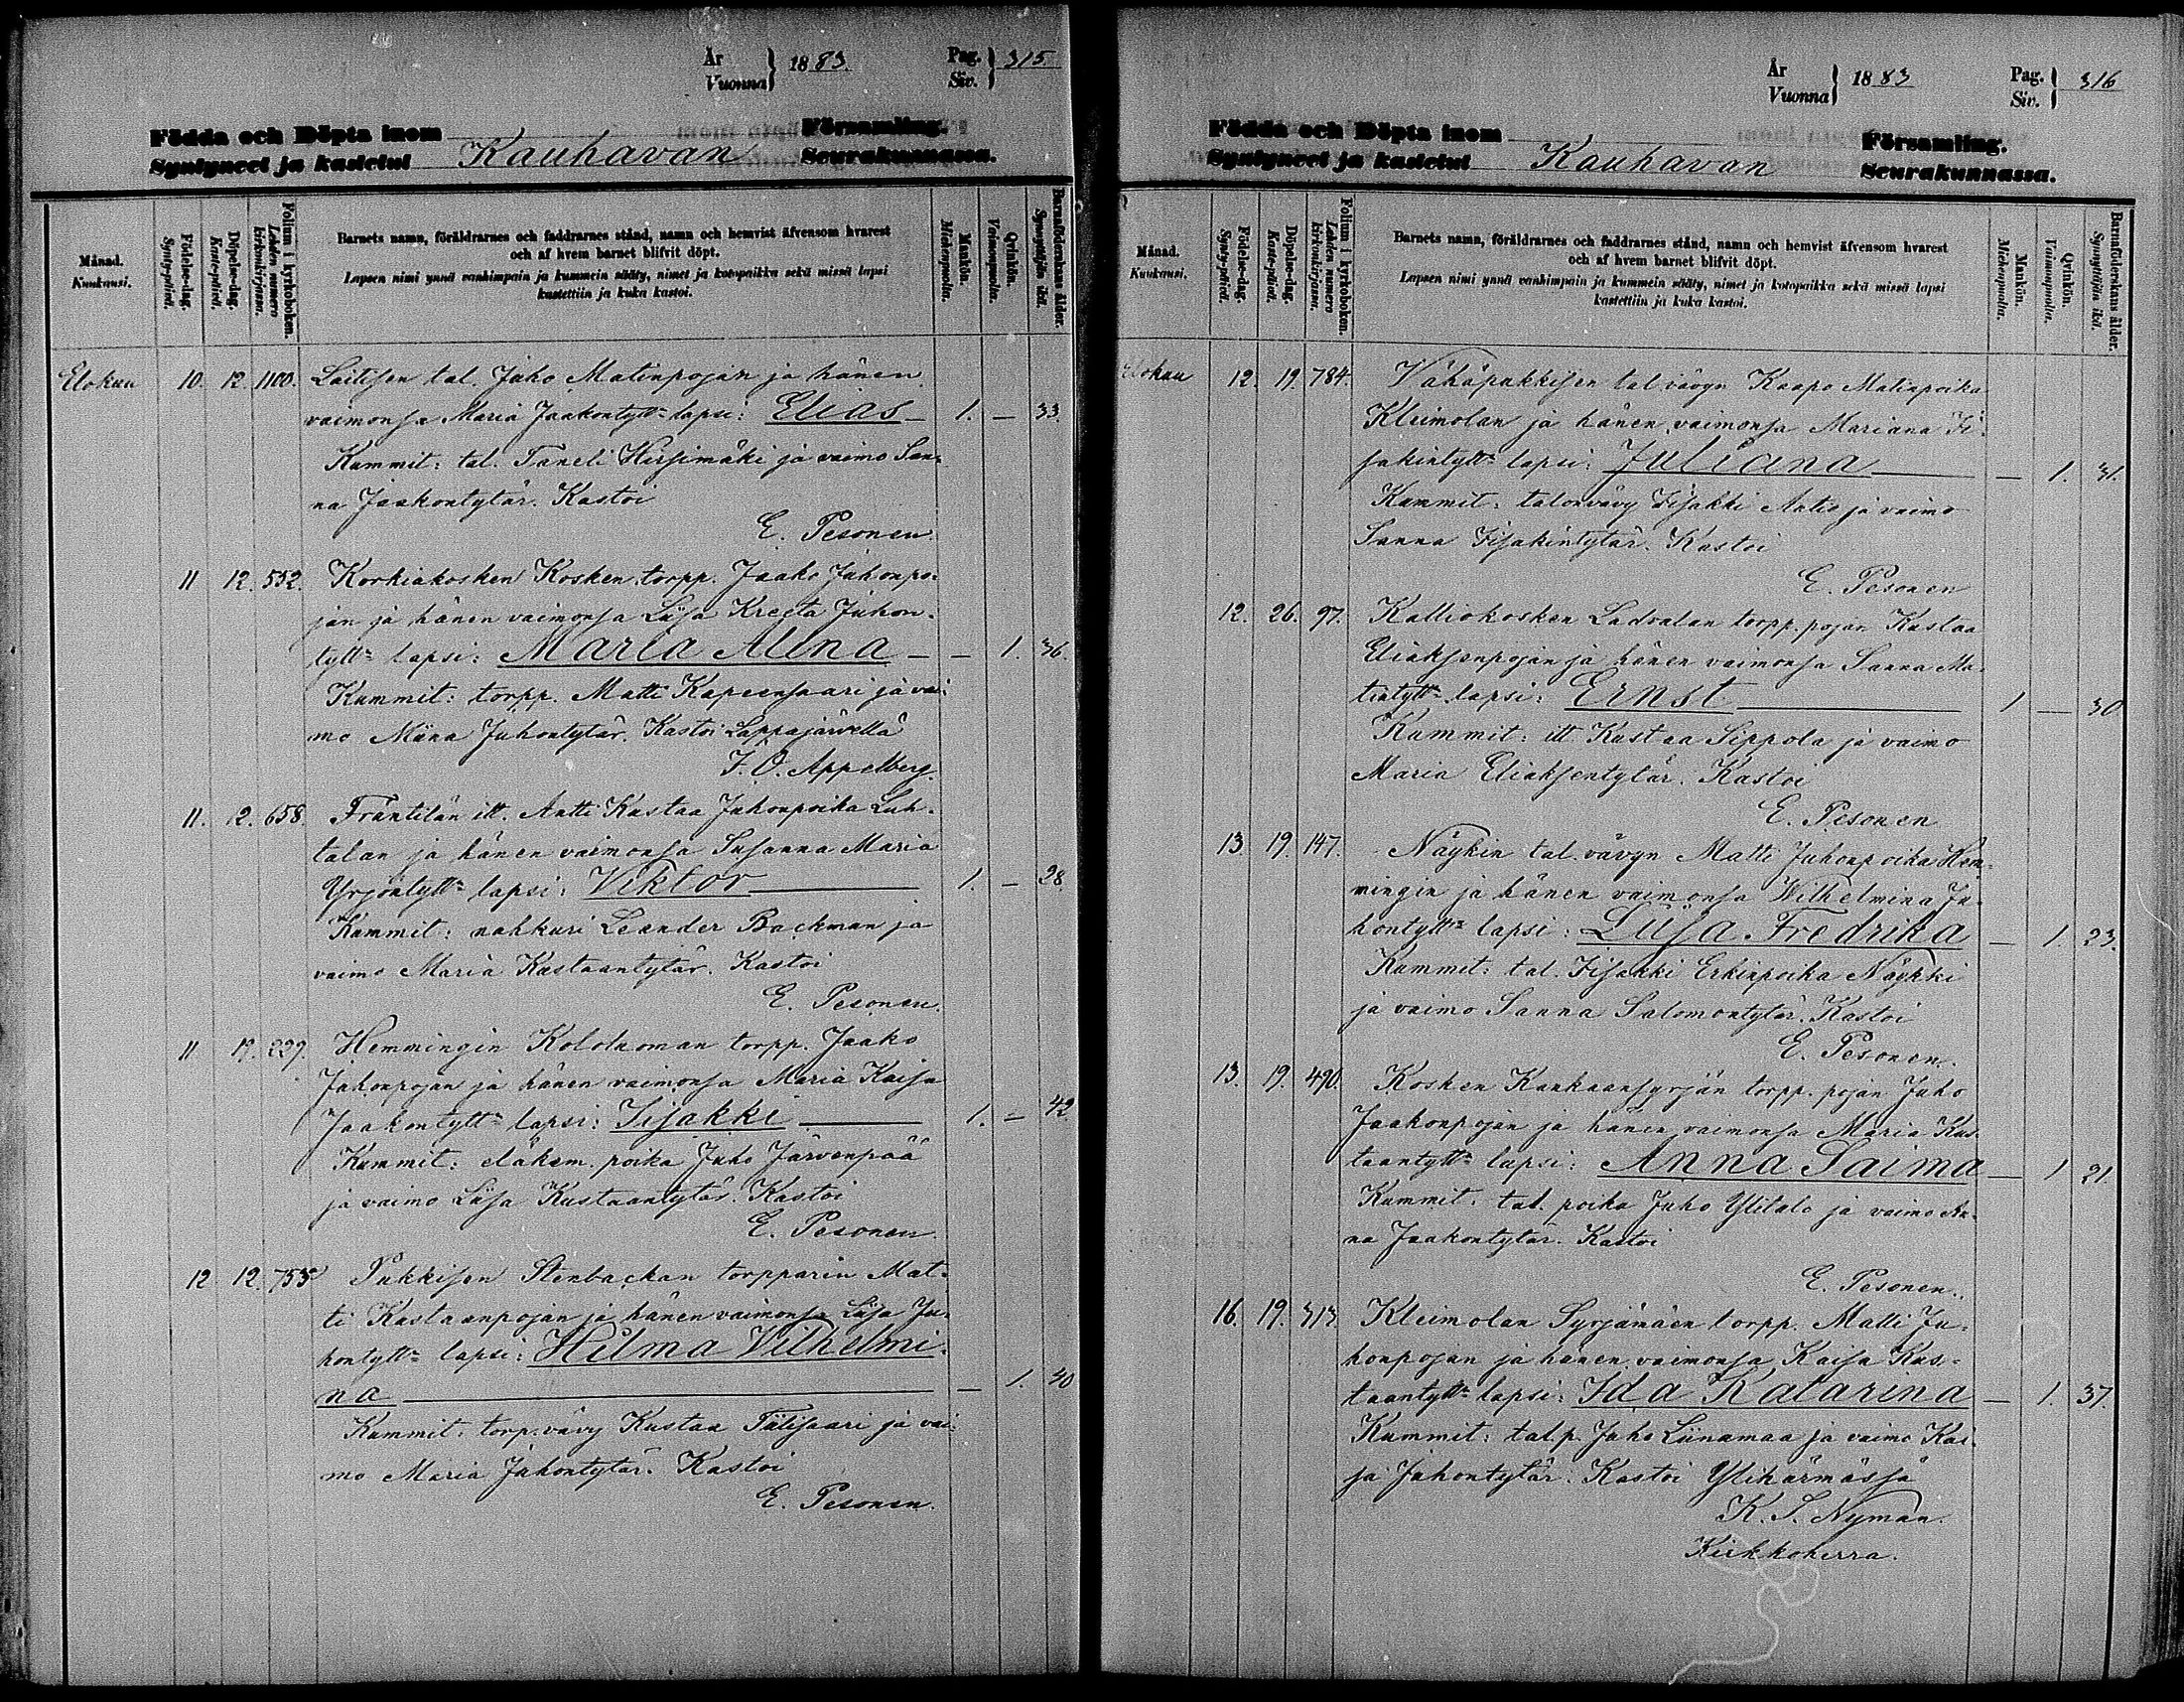 År
Vuonna } 1883.
Pag.
Siv. } 315.
Födda och Döpta inom Församling.
Syntyneet ja kastetut Kauhavan Seurakunnassa.
Månad.
Kuukausi.
Födelse-dag.
Synty-päivä.
Döpelse-dag.
Kaste-päivä.
Folium i kyrkoboken.
Lehden numero kirkonkirjassa.
Barnets namn, föräldrarnes och faddrarnes stånd, namn och hemvist äfvensom hvarest
och af hvem barnet blifvit döpt.
Lapsen nimi ynnä vanhimpain ja kummein sääty, nimet ja kotopaikka sekä missä lapsi
kastettiin ja kuka kastoi.
Mankön.
Miehenpuolta.
Qvinkön.
Vaimonpuolta.
Barnaföderskans ålder.
Synnyttäjän ikä.
Elokuu 10. 12. 1100. Laitisen tal. Juho Matinpojan ja hänen
vaimonsa Maria Jaakontytt= lapsi: Elias — 1. — 33.
Kummit: tal. Taneli Hirsimäki ja vaimo San=
na Jaakontytär. Kastoi
E. Pesonen
11 12. 552. Korkiakosken Kosken torpp. Jaako Juhonpo=
jan ja hänen vaimonsa Liisa Kreeta Juhon=
tytt= lapsi: Maria Alina — — 1. 36.
Kummit: torpp. Matti Kapeensaari ja vai=
mo Miina Juhontytär. Kastoi Lappajärvellä
J. O. Appelberg.
11. 12. 658. Fräntilän itt. Antti Kustaa Juhonpoika Luh=
talan ja hänen vaimonsa Susanna Maria
Yrjöntytt= lapsi: Viktor — 1. — 28.
Kummit: nahkuri Leander Backman ja
vaimo Maria Kustaantytär. Kastoi
E. Pesonen.
11 19. 229. Hemmingin Kololuoman torpp. Jaako
Juhonpojan ja hänen vaimonsa Maria Kaisa
Jaakontytt= lapsi: Iisakki — 1. — 42.
Kummit: eläkem. poika Juho Järvenpää
ja vaimo Liisa Kustaantytär. Kastoi
E. Pesonen.
12 12. 753. Pukkisen Stenbackan torpparin Mat=
ti Kustaanpojan ja hänen vaimonsa Liisa Ju=
hontytt= lapsi: Hilma Vilhelmi=
na — — 1. 40
Kummit: torp. vävy Kustaa Tiilisaari ja vai=
mo Maria Juhontytär. Kastoi
E. Pesonen.
År
Vuonna } 1883
Pag.
Siv. } 316
Födda och Döpta inom Församling.
Syntyneet ja kastetut Kauhavan Seurakunnassa.
Månad.
Kuukausi.
Födelse-dag.
Synty-päivä.
Döpelse-dag.
Kaste-päivä.
Folium i kyrkoboken.
Lehden numero kirkonkirjassa.
Barnets namn, föräldrarnes och faddrarnes stånd, namn och hemvist äfvensom hvarest
och af hvem barnet blifvit döpt.
Lapsen nimi ynnä vanhimpain ja kummein sääty, nimet ja kotopaikka sekä missä lapsi
kastettiin ja kuka kastoi.
Mankön.
Miehenpuolta.
Qvinkön.
Vaimonpuolta.
Barnaföderskans ålder.
Synnyttäjän ikä.
Elokuu 12. 19. 784. Vähäpukkisen tal vävyn Kaapo Matinpoika
Kleimolan ja hänen vaimonsa Mariana Ii=
sakintytt= lapsi: Juliana — — 1. 31.
Kummit: talonvävy Iisakki Antio ja vaimo
Sanna Iisakintytär. Kastoi
E. Pesonen
12. 26. 97. Kalliokosken Ladvalan torpp. pojan Kustaa
Eliaksenpojan ja hänen vaimonsa Sanna Ma=
tintytt= lapsi: Ernst — 1 — 30
Kummit: itt. Kustaa Sippola ja vaimo
Maria Eliaksentytär. Kastoi
E. Pesonen
13. 19. 147. Näykin tal. vävyn Matti Juhonpoika Hem=
mingin ja hänen vaimonsa Wilhelmina Ju=
hontytt= lapsi: Liisa Fredrika — 1. 23.
Kummit: tal. Iisakki Erkinpoika Näykki
ja vaimo Sanna Salomontytär. Kastoi
E. Pesonen.
13. 19. 490. Kosken Kankaansyrjän torpp. pojan Juho
Jaakonpojan ja hänen vaimonsa Maria Kus=
taantytt= lapsi: Anna Saima — 1 21.
Kummit: tal. poika Juho Ylitalo ja vaimo An=
na Jaakontytär. Kastoi
E. Pesonen.
16. 19. 313. Kleimolan Syrjämäen torpp. Matti Ju=
honpojan ja hänen vaimonsa Kaisa Kus=
taantytt= lapsi: Ida Katarina — 1. 37.
Kummit: tal.p. Juho Liinamaa ja vaimo Kai=
sa Juhontytär. Kastoi Ylihärmässä
K. S. Nyman.
Kirkkoherra.